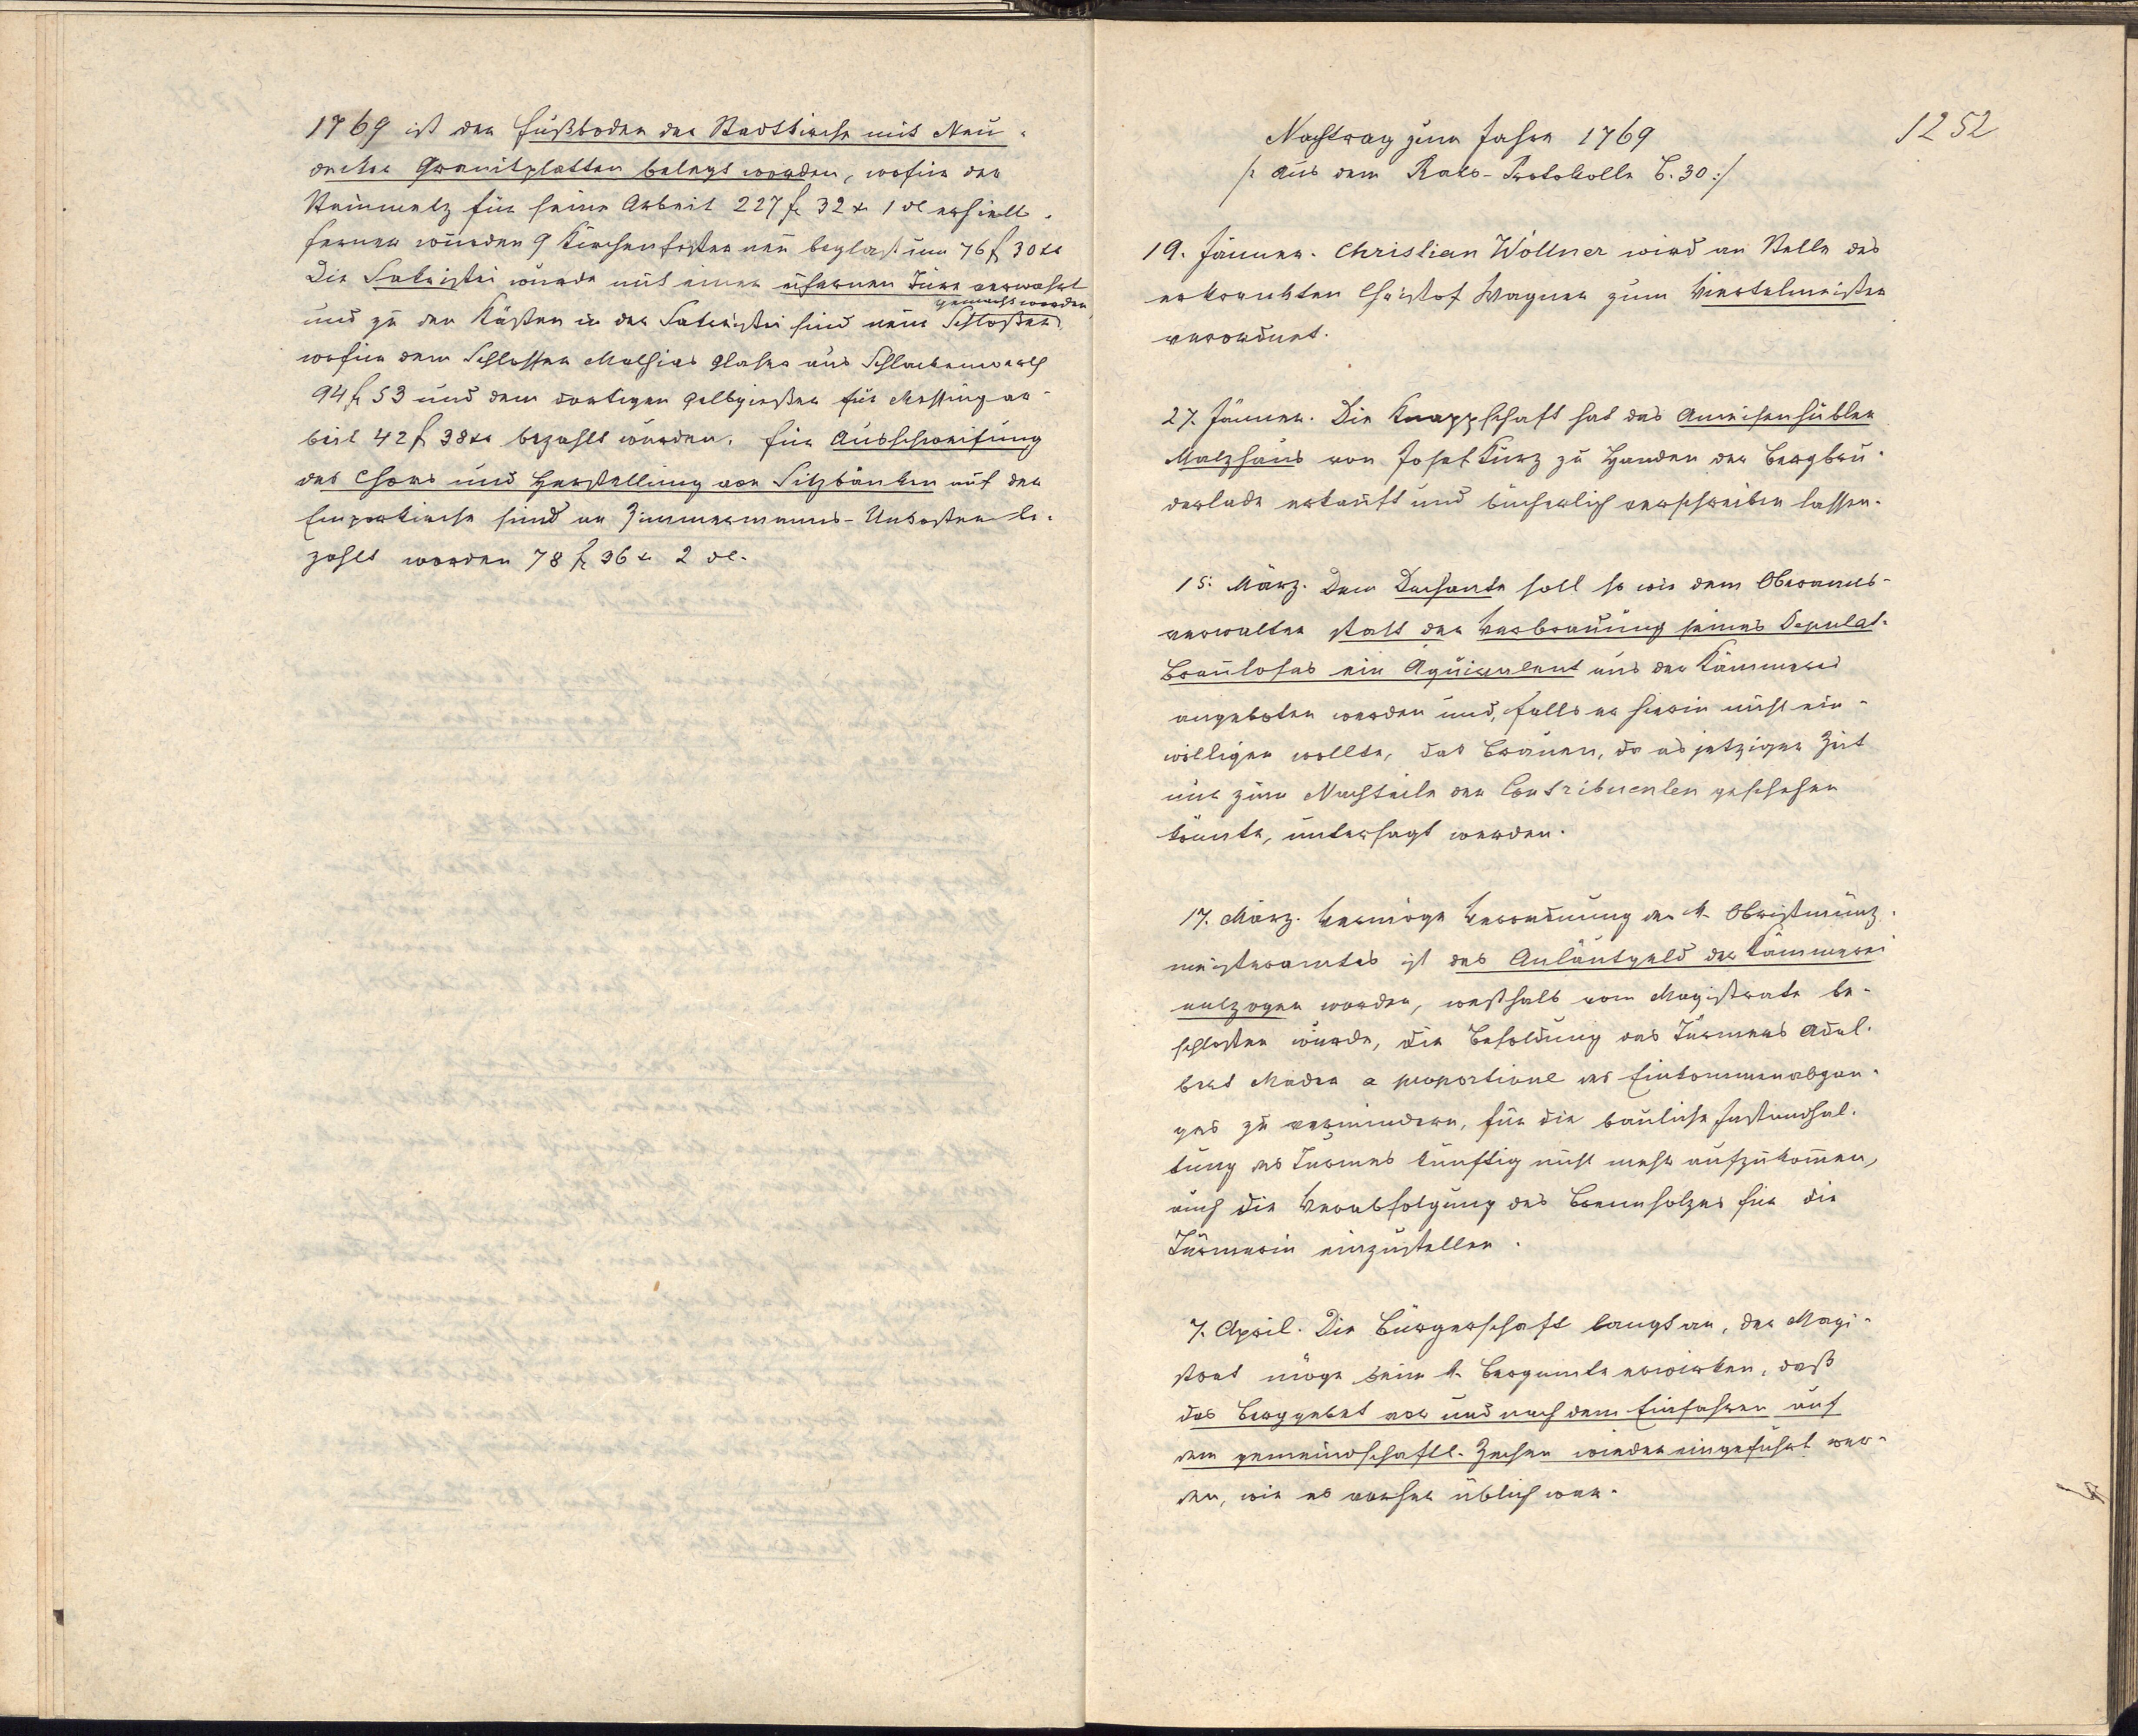 1769 ist der Fußboden der Stadtkirche mit Neu-
decker Granitplatten belegt worden, wofür der
Steinmetz für seine Arbeit 227 f 32 x 1 dl erhielt.
Ferner wurden 9 Kirchenfenster neu beglast um 76 f 30 xr
Die Sakristei wurde mit einer eisernen Türe verwahrt
gemacht worden,
und zu den Kästen in der Sakristei sind neue Schlosser
wofür dem Schlosser Mathias Glaser aus Schlackenwerth
94 f 53 und dem dortigen Gelbgießer für Messingar-
beit 42 f 38 xr bezahlt wurden. Für Ausschweifung
des Chors und Herstellung von Sitzbänken auf der
Emporkirche sind an Zimmermanns-Unkosten be-
zahlt worden 78 f 36 x 2 dl.
1252
Nachtrag zum Jahre 1769
/: Aus dem Rats-Protokolle B. 30 :/
19. Jänner. Christian Wöllner wird an Stelle des
erkrankten Christof Wagner zum Viertelmeister
verordnet.
27. Jänner. Die Knappschaft hat das Ameisenhübler
Malzhaus von Josef Kurz zu Handen der Bergbru-
derlade erkauft und bücherlich verschreiben lassen.
15. März. Dem Dechante soll so wie dem Oberamts-
verwalter statt der Verbrauung seines Deputat-
Braulohes ein Äquivalent aus der Kämmerei
angeboten werden und, falls er hierin nicht ein-
willigen wollte, das Brauen, da es jetziger Zeit
nur zum Nachteile der Contribuenten geschehen
könnte, untersagt werden.
17. März. Vermöge Verordnung des k. Obristmünz-
meisteramtes ist das Anläutgeld der Kämmerei
entzogen worden, weshalb vom Magistrate be-
schlossen wurde, die Besoldung des Türmers Adal-
bert Mader a proportione des Einkommenabgan-
ges zu vermindern, für die bauliche Instandhal-
tung des Turmes künftig nicht mehr aufzukommen,
auch die Verabfolgung des Brennholzes für die
Türmerin einzustellen.
7. April. Die Bürgerschaft langt an, der Magi-
strat möge beim k. Bergamte erwirken, daß
das Berggebet vor und nach dem Einfahren auf
den gemeindschaftl. Zechen wieder eingeführt wer-
den, wie es vorher üblich war.